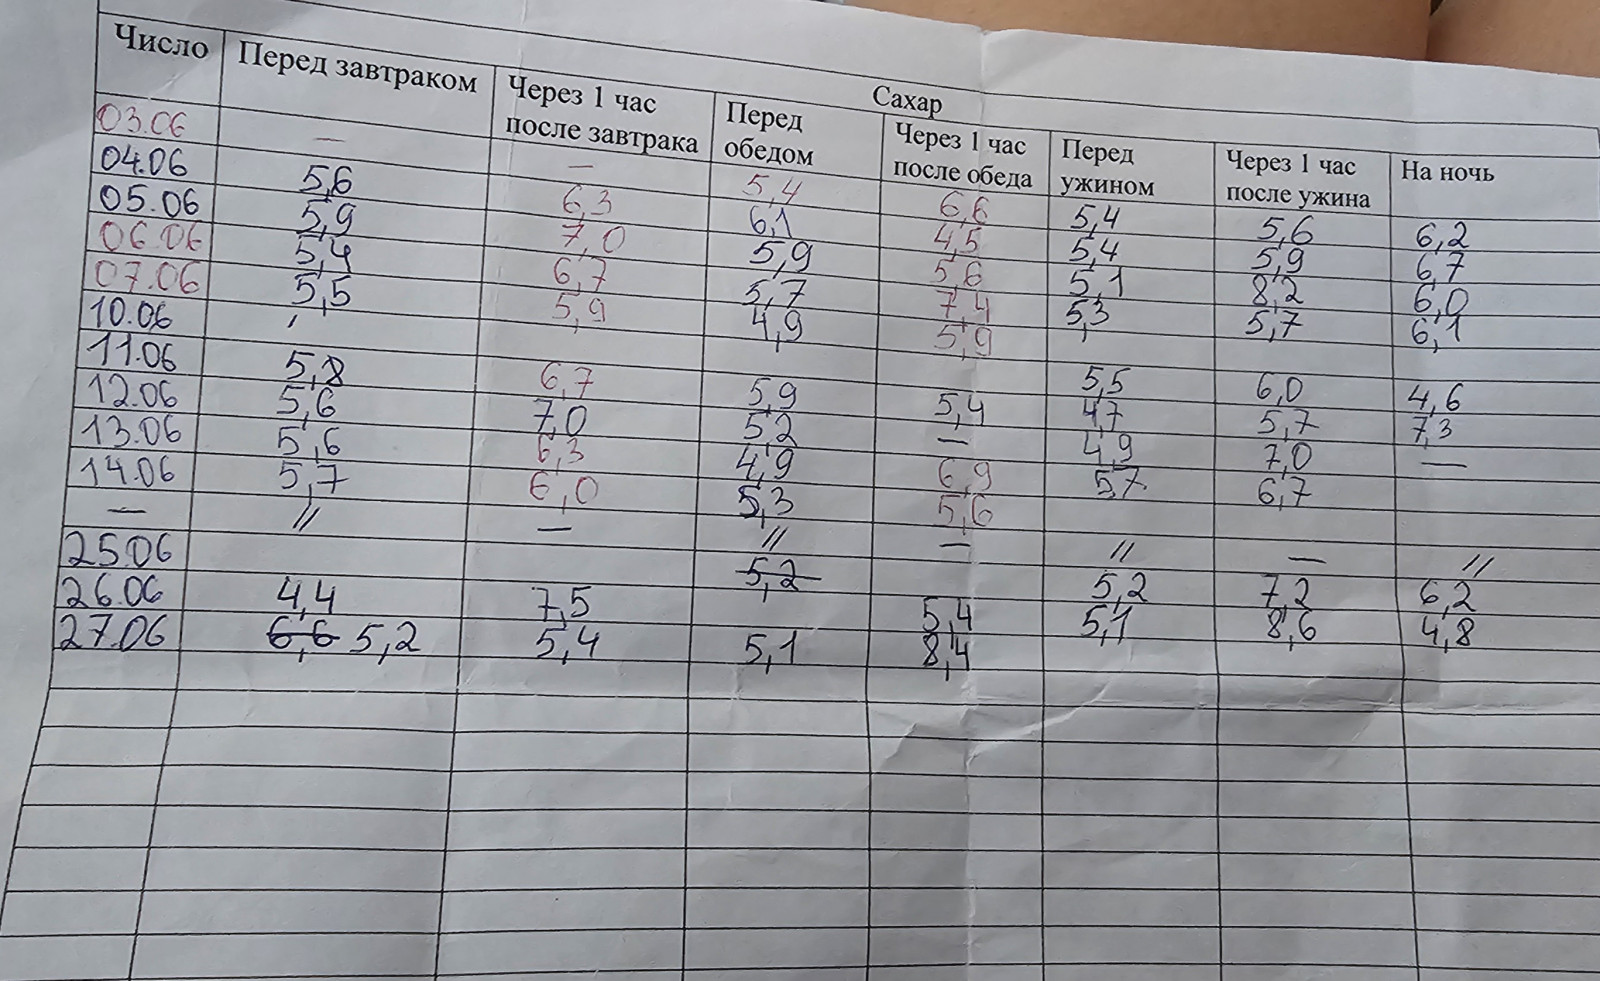 Сахар
Число Перед завтраком Через 1 час после завтрака Перед обедом Через 1 час после обеда Перед ужином Через 1 час после ужина На ночь
03.06 — — 5,4 6,6 5,4 5,6 6,2
04.06 5,6 6,3 6,1 4,5 5,4 5,9 6,7
05.06 5,9 7,0 5,9 5,6 5,1 8,2 6,0
06.06 5,4 6,7 5,7 7,4 5,3 5,7 6,1
07.06 5,5 5,9 4,9 5,9
10.06 5,5 6,0 4,6
11.06 5,8 6,7 5,9 5,4 4,7 5,7 7,3
12.06 5,6 7,0 5,2 — 4,9 7,0 —
13.06 5,6 6,3 4,9 6,9 5,7 6,7
14.06 5,7 6,0 5,3 5,6
— // — // — // — //
25.06 5,2 5,2 7,2 6,2
26.06 4,4 7,5 5,4 5,1 8,6 4,8
27.06 6,6 5,2 5,4 5,1 8,4